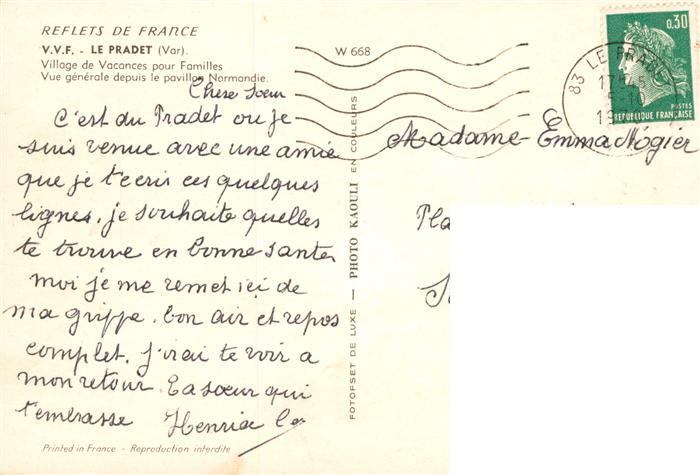 REFLETS DE FRANCE
V.V.F. - LE PRADET (Var).
Village de Vacances pour Familles
Vue générale depuis le pavillon Normandie.
W 668
Chere Sœur
C'est du Pradet ou je
suis venue avec une amie
que je t'ecris ces quelques
lignes. je souhaite quelles
te trouve en bonne sante,
moi je me remet ici de
ma grippe. bon air et repos
complet. j'irai te voir a
mon retour. ta sœur qui
t'embrasse Henria
Printed in France - Reproduction interdite
FOTOFSET DE LUXE — PHOTO KAOULI EN COULEURS
0.30
POSTES
REPUBLIQUE FRANÇAISE
83 LE PRADET
Madame Emma Nógier
Pla